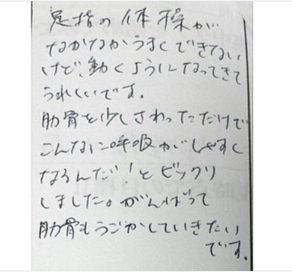 足指の体操が
なかなかうまくできない
けど、動くようになってきて
うれしいです。
肋骨を少しさわっただけで
こんなに呼吸がしやすく
なるんだ!とビックリ
しました。がんばって
肋骨もうごかしていきたい
です。